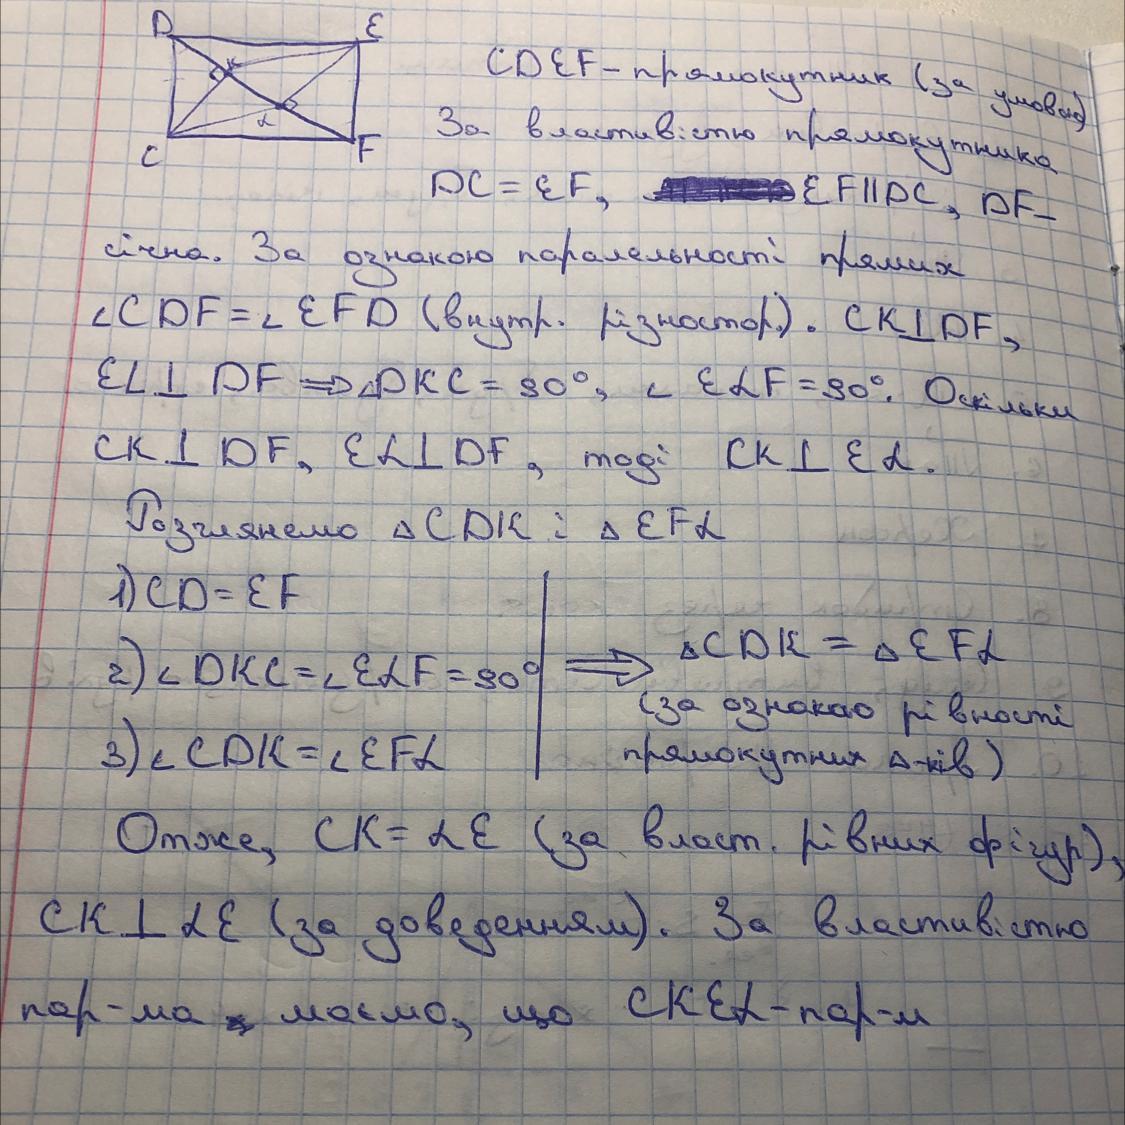 D E
K
L
C F
CDEF - прямокутник (за умовою)
За властивістю прямокутника
DC = EF, EF || DC, DF -
січна. За ознакою паралельності прямих
∠CDF = ∠EFD (внутр. різностор.). CK ⊥ DF,
EL ⊥ DF ⇒ ∠DKC = 90°, ∠ELF = 90°. Оскільки
CK ⊥ DF, EL ⊥ DF, тоді CK ⊥ EL.
Розглянемо △CDK і △EFL
1) CD = EF
2) ∠DKC = ∠ELF = 90°
3) ∠CDK = ∠EFL
⇒ △CDK = △EFL
(за ознакою рівності
прямокутних △-ків)
Отже, CK = LE (за власт. рівних фігур),
CK ⊥ LE (за доведенням). За властивістю
пар-ма маємо, що CKEL - пар-м